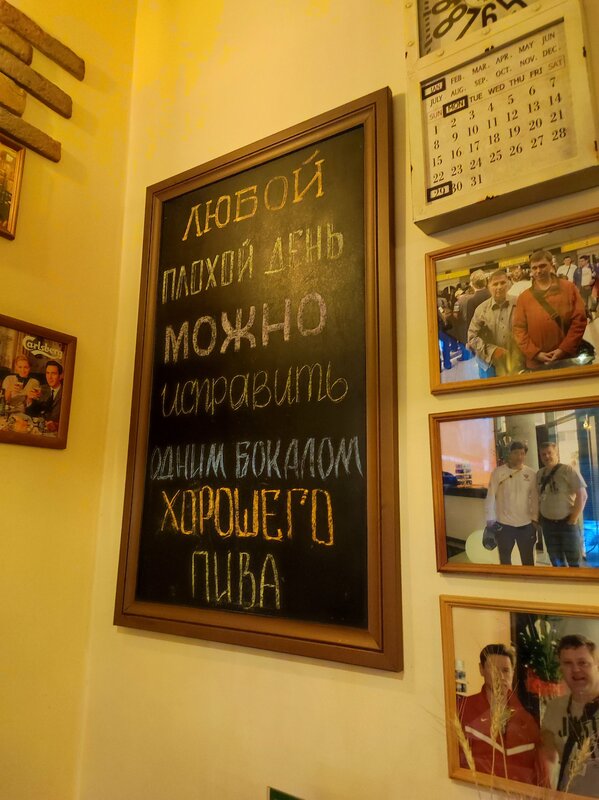 ЛЮБОЙ
ПЛОХОЙ ДЕНЬ
МОЖНО
исправить
ОДНИМ БОКАЛОМ
ХОРОШЕГО
ПИВА
Carlsberg
JAN FEB. MAR. APR. MAY JUN
JULY AUG. SEP. OCT. NOV. DEC.
SUN MON TUE WED THU FRI SAT
1 2 3 4 5 6 7
8 9 10 11 12 13 14
15 16 17 18 19 20 21
22 23 24 25 26 27 28
29 30 31